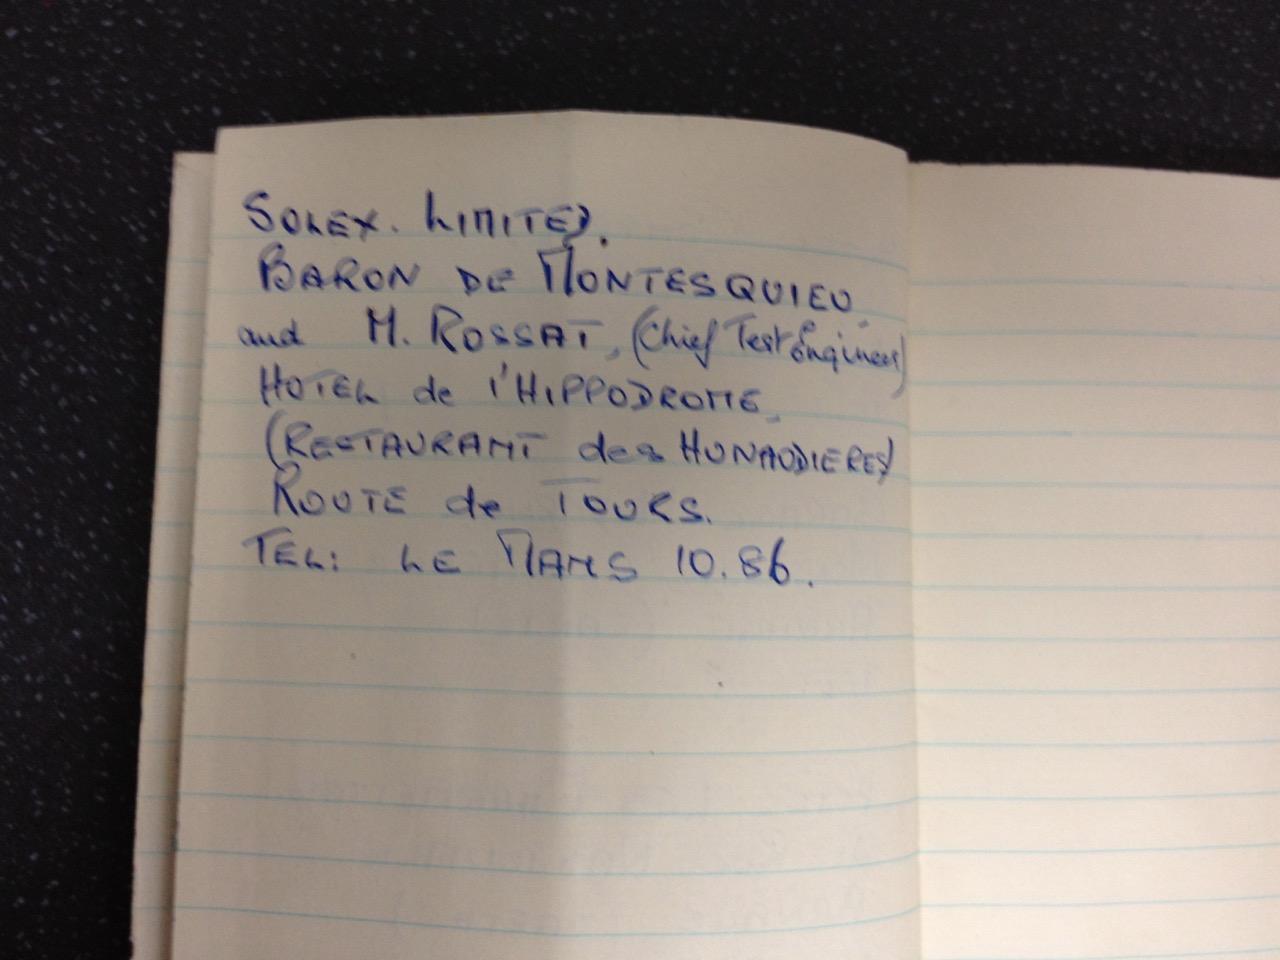 SOLEX. LIMITED.
BARON DE MONTESQUIEU
and M. ROSSAT, (Chief Test Engineer)
HOTEL de l'HIPPODROME,
(RESTAURANT des HUNAUDIERES)
ROUTE de TOURS.
TEL: LE MANS 10.86.